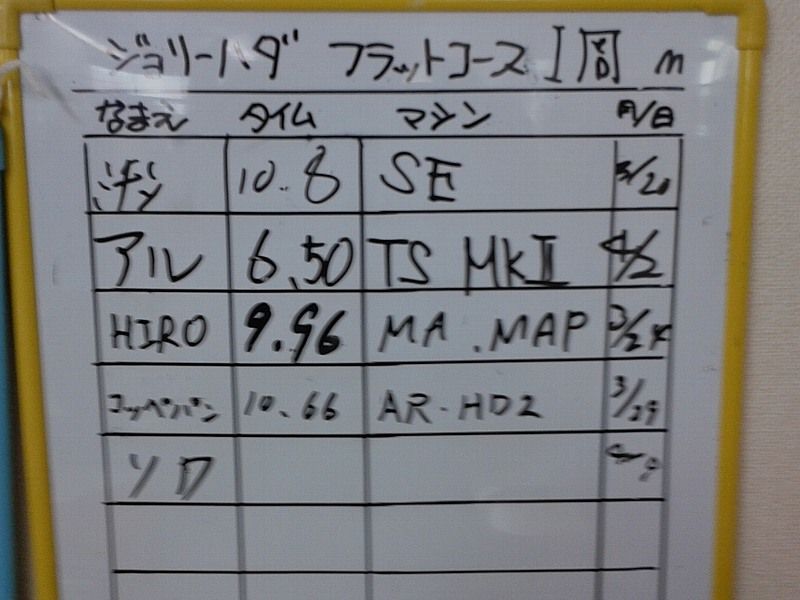 ジョリーハダ フラットコース 1周 m
なまえ タイム マシン 月/日
10.8 SE 3/20
アル 6.50 TS MkII 4/2
HIRO 9.96 MA.MAP 3/24
コッペパン 10.66 AR-HD2 3/29
ソロ